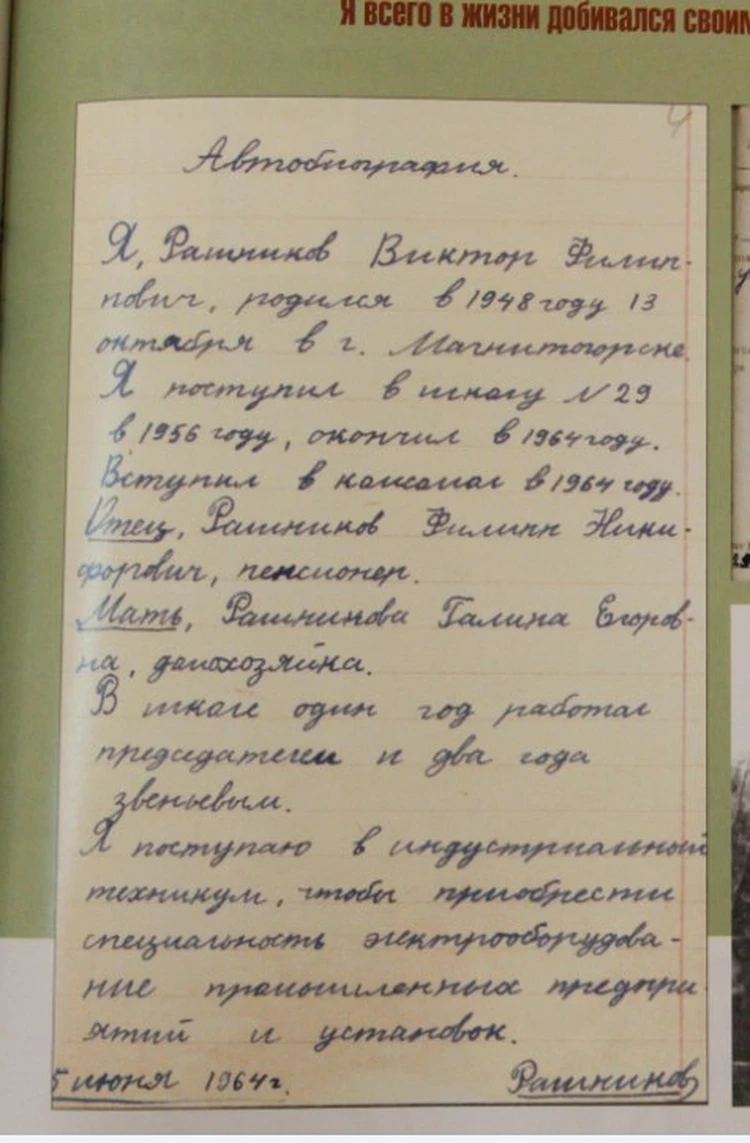 Я всего в жизни добивался своим
4
Автобиография.
Я, Рашников Виктор Филип-
пович, родился в 1948 году 13
октября в г. Магнитогорске.
Я поступил в школу N 29
в 1956 году, окончил в 1964 году.
Вступил в комсомол в 1964 году.
Отец, Рашников Филипп Ники-
форович, пенсионер.
Мать, Рашникова Галина Егоров-
на, домохозяйка.
В школе один год работал
председателем и два года
звеньевым.
Я поступаю в индустриальный
техникум, чтобы приобрести
специальность электрооборудова-
ние промышленных предпри-
ятий и установок.
5 июня 1964 г. Рашников